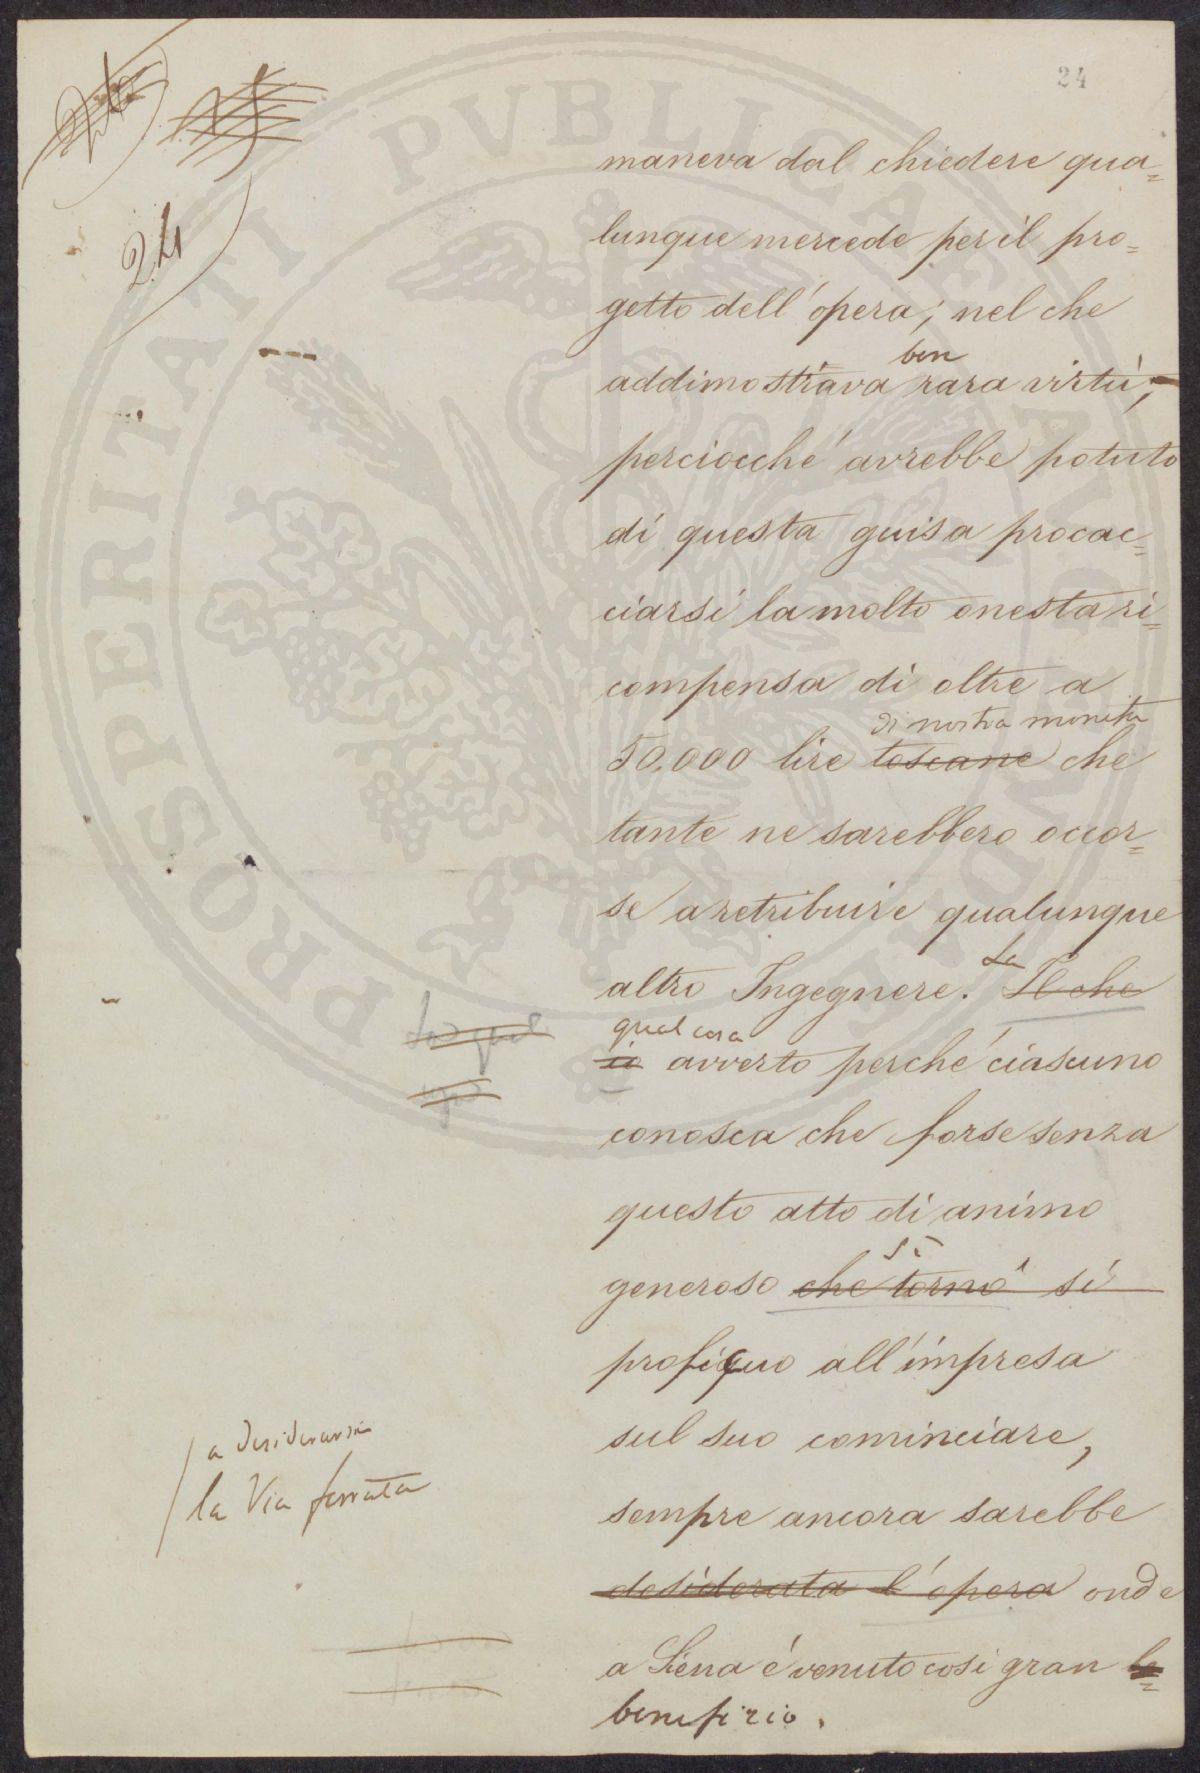 24
24
maneva dal chiedere qua=
lunque mercede per il pro=
getto dell'opera; nel che
ben
addimostrava rara virtù;
perciocché avrebbe potuto
di questa guisa procac=
ciarsi la molto onesta ri=
compensa di oltre a
di nostra moneta
50.000 lire toscane che
tante ne sarebbero occor=
se a retribuire qualunque
La
altro Ingegnere. Il che
qual cosa
io avverto perché ciascuno
conosca che forse senza
questo atto di animo
sì
generoso che tornò sì
proficuo all'impresa
sul suo cominciare,
sempre ancora sarebbe
a desiderarsi
la Via ferrata
desiderata l'opera onde
a Siena é venuto così gran be=
benefizio.
PROSPERITATI PVBLICAE AVGENDAE